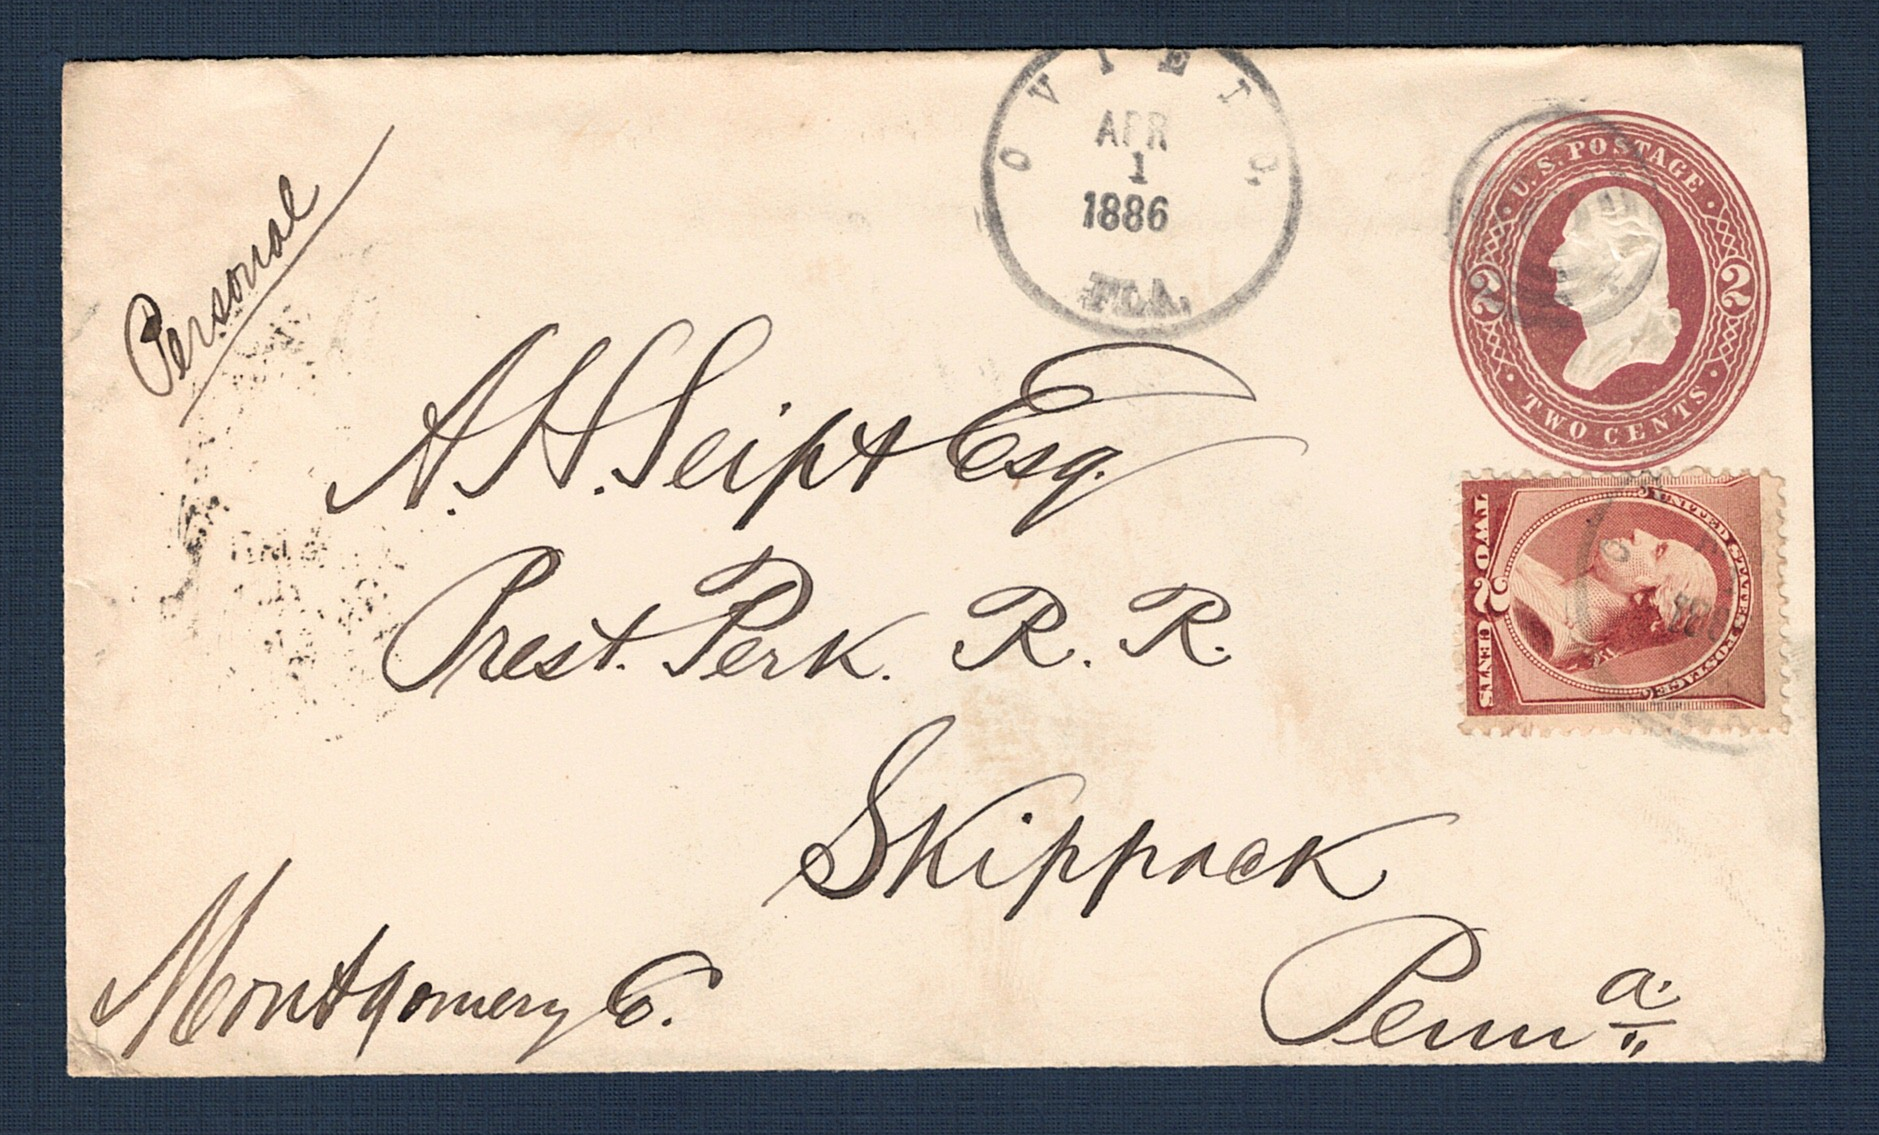 OVIEDO.
APR
1
1886
FLA.
U.S. POSTAGE
2 2
TWO CENTS
Personal
A. H. Seipt Esq.
Prest. Perk. R. R.
UNITED STATES POSTAGE
TWO 2 CENTS
Skippack
Montgomery Co.
Penna.